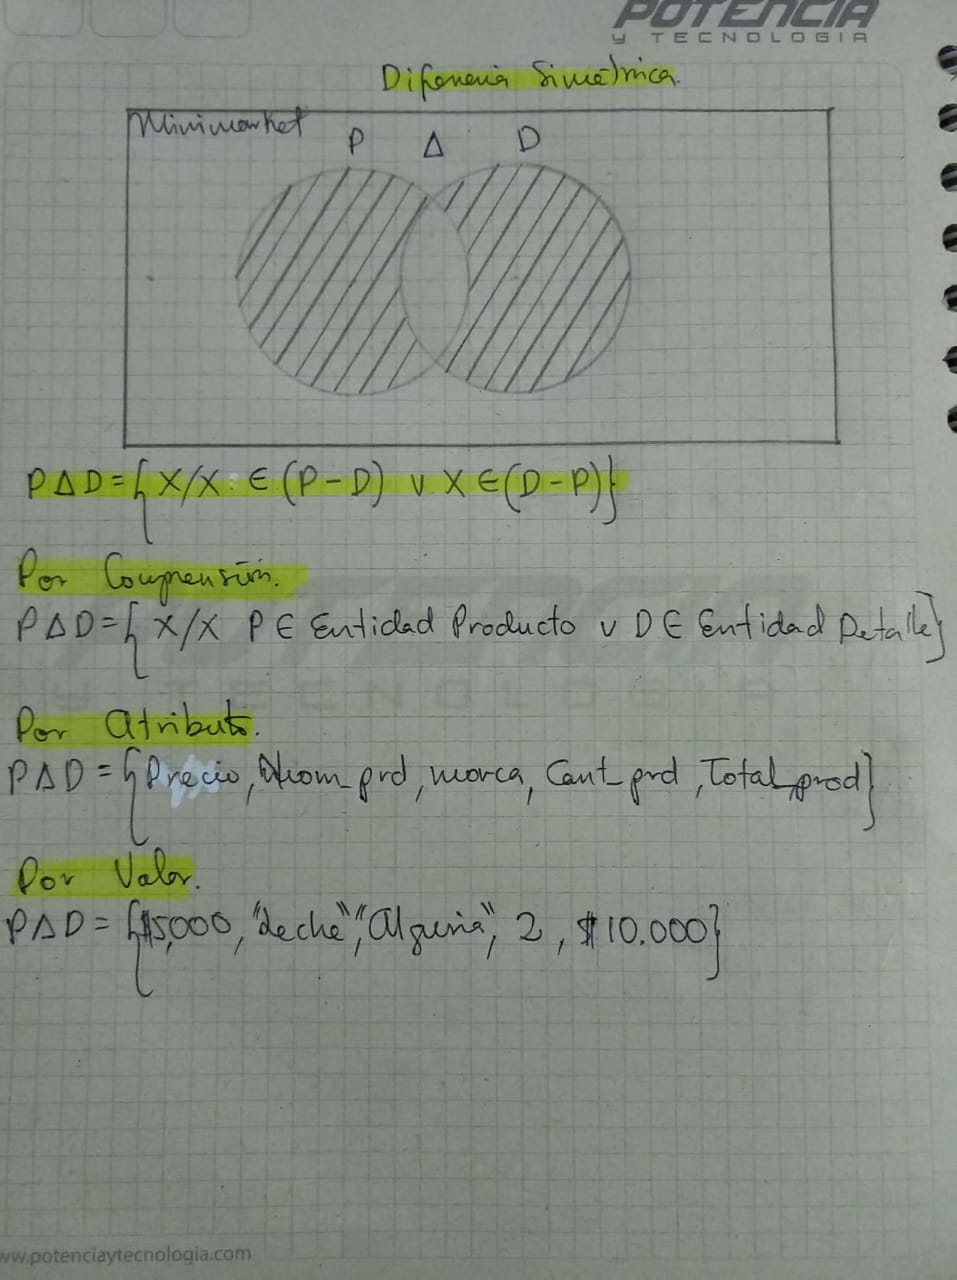 POTENCIA
Y TECNOLOGIA
Diferencia Simétrica.
Minimarket
P Δ D
PΔD={X/X ∈ (P-D) ∨ X ∈ (D-P)}
Por Comprensión.
PΔD={X/X P ∈ Entidad Producto ∨ D ∈ Entidad Detalle}
Por Atributo.
PΔD={Precio, Nom_prd, marca, Cant_prd, Total_prod}
Por Valor.
PΔD={$5,000, "Leche", "Alquería", 2, $10.000}
ww.potenciaytecnologia.com